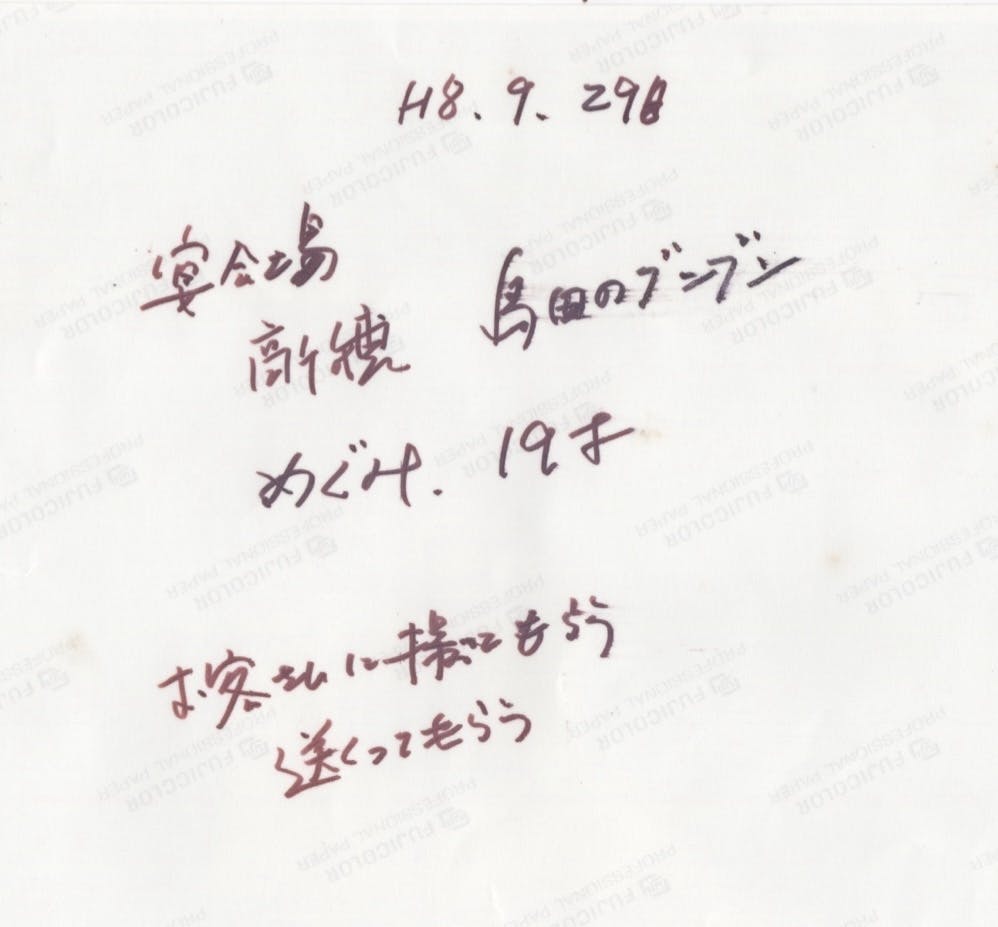 H8.9.29日
宴会場 島田のブンブン
高千穂
めぐみ. 19才
お客さんに撮ってもらう
送くってもらう
FUJICOLOR
PROFESSIONAL PAPER